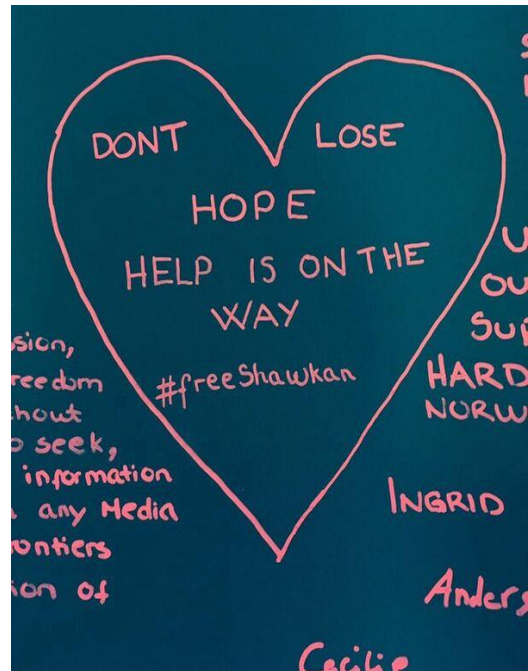 DONT LOSE
HOPE
HELP IS ON THE
WAY
#freeShawkan
sion,
reedom
hout
o seek,
information
any Media
ontiers
ion of
OU
SUP
HARD
NORW
INGRID
Anders
Cecilie